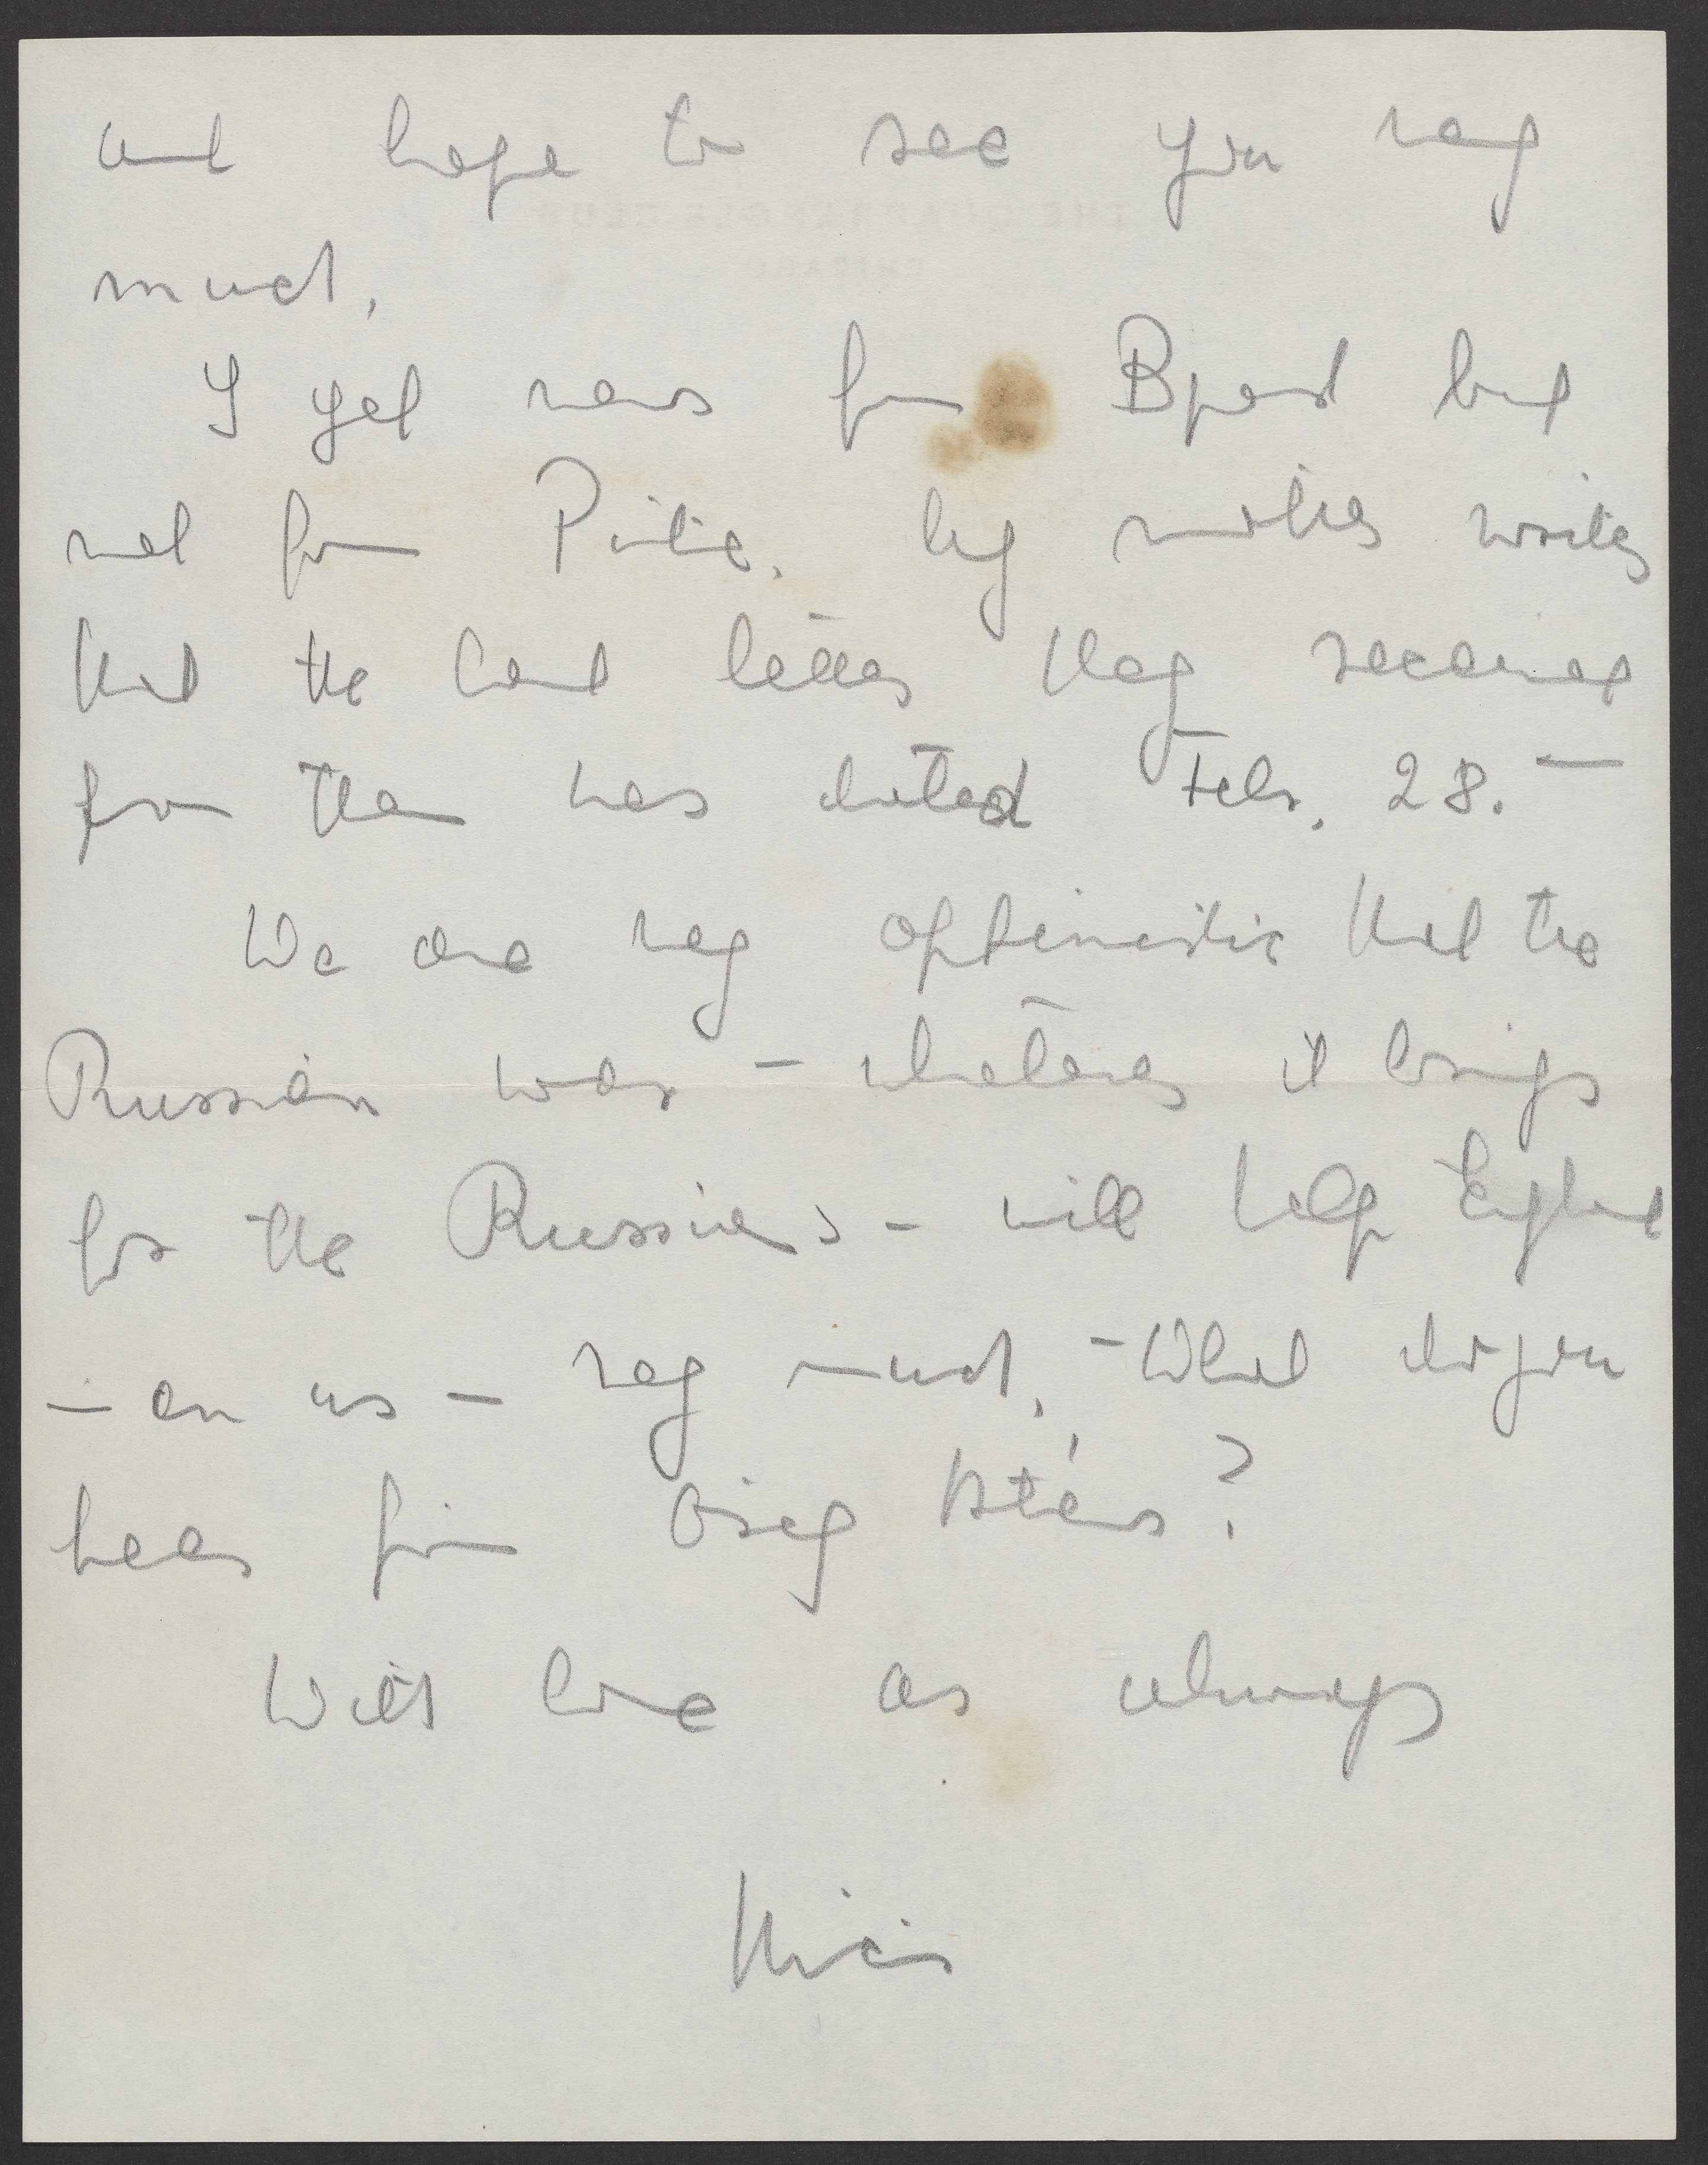 and hope to see you very
much.
I get news from Bpest but
not from Piitie. My mother writes
that the last letter they received
from them was dated Feb. 28. —
We are very optimistic that the
Russian war – whatever it brings
for the Russians – will help England
– an us – very much. – What do you
hear from öreg István?
With love as always